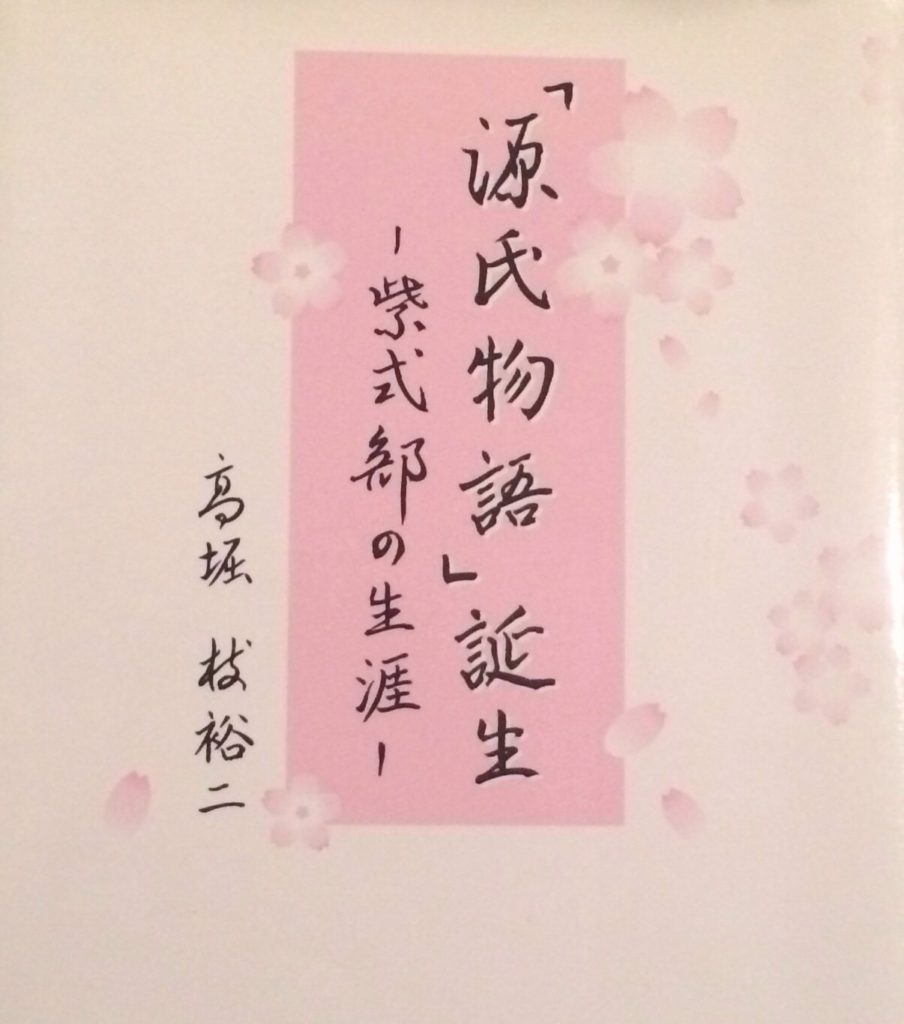 「源氏物語」誕生
－紫式部の生涯－
高堀 枝裕二